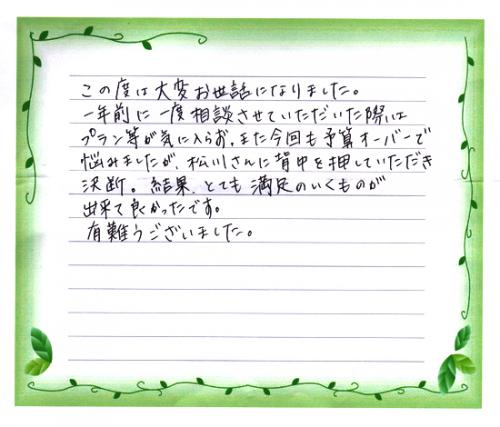 この度は大変お世話になりました。
一年前に一度相談させていただいた際は
プラン等が気に入らず、また今回も予算オーバーで
悩みましたが、松川さんに背中を押していただき
決断。結果、とても満足のいくものが
出来て良かったです。
有難うございました。